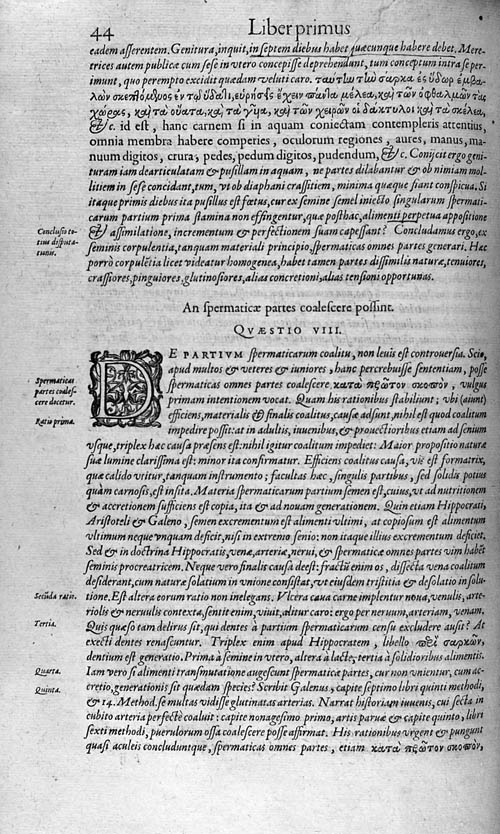 44 Liber primus
eadem asserentem. Genitura, inquit, in septem diebus habet quæcunque habere debet. Mere-
trices autem publicæ cum sese in vtero concepisse deprehendunt, tum conceptum intra se per-
imunt, quo perempto excidit quædam veluti caro. ταύτην τὴν σάρκα ἐς ὕδωρ ἐμβα-
λὼν σκεπτόμενος ἐν τῷ ὕδατι, εὑρήσεις ἔχειν πάντα μέλεα, καὶ τῶν ὀφθαλμῶν τὰς
χώρας, καὶ τὰ οὔατα, καὶ τὰ γυῖα, καὶ τῶν χειρῶν οἱ δάκτυλοι καὶ τὰ σκέλεα,
&c. id est, hanc carnem si in aquam coniectam contempleris attentius,
omnia membra habere comperies, oculorum regiones, aures, manus, ma-
nuum digitos, crura, pedes, pedum digitos, pudendum, &c. Conijcit ergo geni-
turam iam dearticulatam & pusillam in aquam, ne partes dilabantur & ob nimiam mol-
litiem in sese concidant, tum, vt ob diaphani crassitiem, minima quæque fiant conspicua. Si
itaque primis diebus ita pusillus est fœtus, cur ex semine semel iniecto singularum spermati-
carum partium prima stamina non effingentur, quæ posthac, alimenti perpetua appositione
& assimilatione, incrementum & perfectionem suam capessant? Concludamus ergo, ex
Conclusio to-
tius disputa-
tionis.
seminis corpulentia, tanquam materiali principio, spermaticas omnes partes generari. Hæc
porrò corpulētia licet videatur homogenea, habet tamen partes dissimilis naturæ, tenuiores,
crassiores, pinguiores, glutinosiores, alias concretioni, alias tensioni opportunas.
An spermaticæ partes coalescere possint.
QVÆSTIO VIII.
DE PARTIVM spermaticarum coalitu, non leuis est controuersia. Scio,
apud multos & veteres & iuniores, hanc percrebuisse sententiam, posse
Spermaticas
partes coales-
cere docetur.
spermaticas omnes partes coalescere κατὰ πρῶτον σκοπὸν, vulgus
primam intentionem vocat. Quam his rationibus stabiliunt; vbi (aiunt)
efficiens, materialis & finalis coalitus, causæ adsunt, nihil est quod coalitum
Ratio prima.
impedire possit: at in adultis, iuuenibus, & prouectioribus etiam ad senium
vsque, triplex hæc causa præsens est: nihil igitur coalitum impediet: Maior propositio naturæ
suæ lumine clarissima est: minor ita confirmatur. Efficiens coalitus causa, vis est formatrix,
quæ calido vtitur, tanquam instrumento; facultas hæc, singulis partibus, sed solidis potius
quam carnosis, est insita. Materia spermaticarum partium semen est, cuius, vt ad nutritionem
& accretionem sufficiens est copia, ita & ad nouam generationem. Quin etiam Hippocrati,
Aristoteli & Galeno, semen excrementum est alimenti vltimi, at copiosum est alimentum
vltimum neque vnquam deficit, nisi in extremo senio: non itaque illius excrementum deficiet.
Sed & in doctrina Hippocratis, venæ, arteriæ, nerui, & spermaticæ omnes partes vim habēt
seminis procreatricem. Neque vero finalis causa deest: fractū enim os, dissecta vena coalitum
desiderant, cum naturæ solatium in vnione consistat, vt eiusdem tristitia & desolatio in solu-
Secūda ratio.
tione. Est altera eorum ratio non inelegans. Vlcera caua carne implentur noua, venulis, arte-
riolis & neruulis contexta, sentit enim, viuit, alitur caro: ergo per neruum, arteriam, venam.
Tertia.
Quis quæso tam delirus sit, qui dentes à partium spermaticarum censu excludere ausit? At
execti dentes renascuntur. Triplex enim apud Hippocratem, libello περὶ σαρκῶν,
dentium est generatio. Prima à semine in vtero, altera à lacte, tertia à solidioribus alimentis.
Quarta.
Iam vero si alimenti transmutatione augescunt spermaticæ partes, cur non vnientur, cum ac-
cretio, generationis sit quædam species? Scribit Galenus, capite septimo libri quinti methodi,
Quinta.
& 14. Method. se multas vidisse glutinatas arterias. Narrat historiam iuuenis, cui secta in
cubito arteria perfectè coaluit: capite nonagesimo primo, artis paruæ & capite quinto, libri
sexti methodi, puerulorum ossa coalescere posse affirmat. His rationibus vrgent & pungunt
quasi aculeis concluduntque, spermaticas omnes partes, etiam κατὰ πρῶτον σκοπὸν,